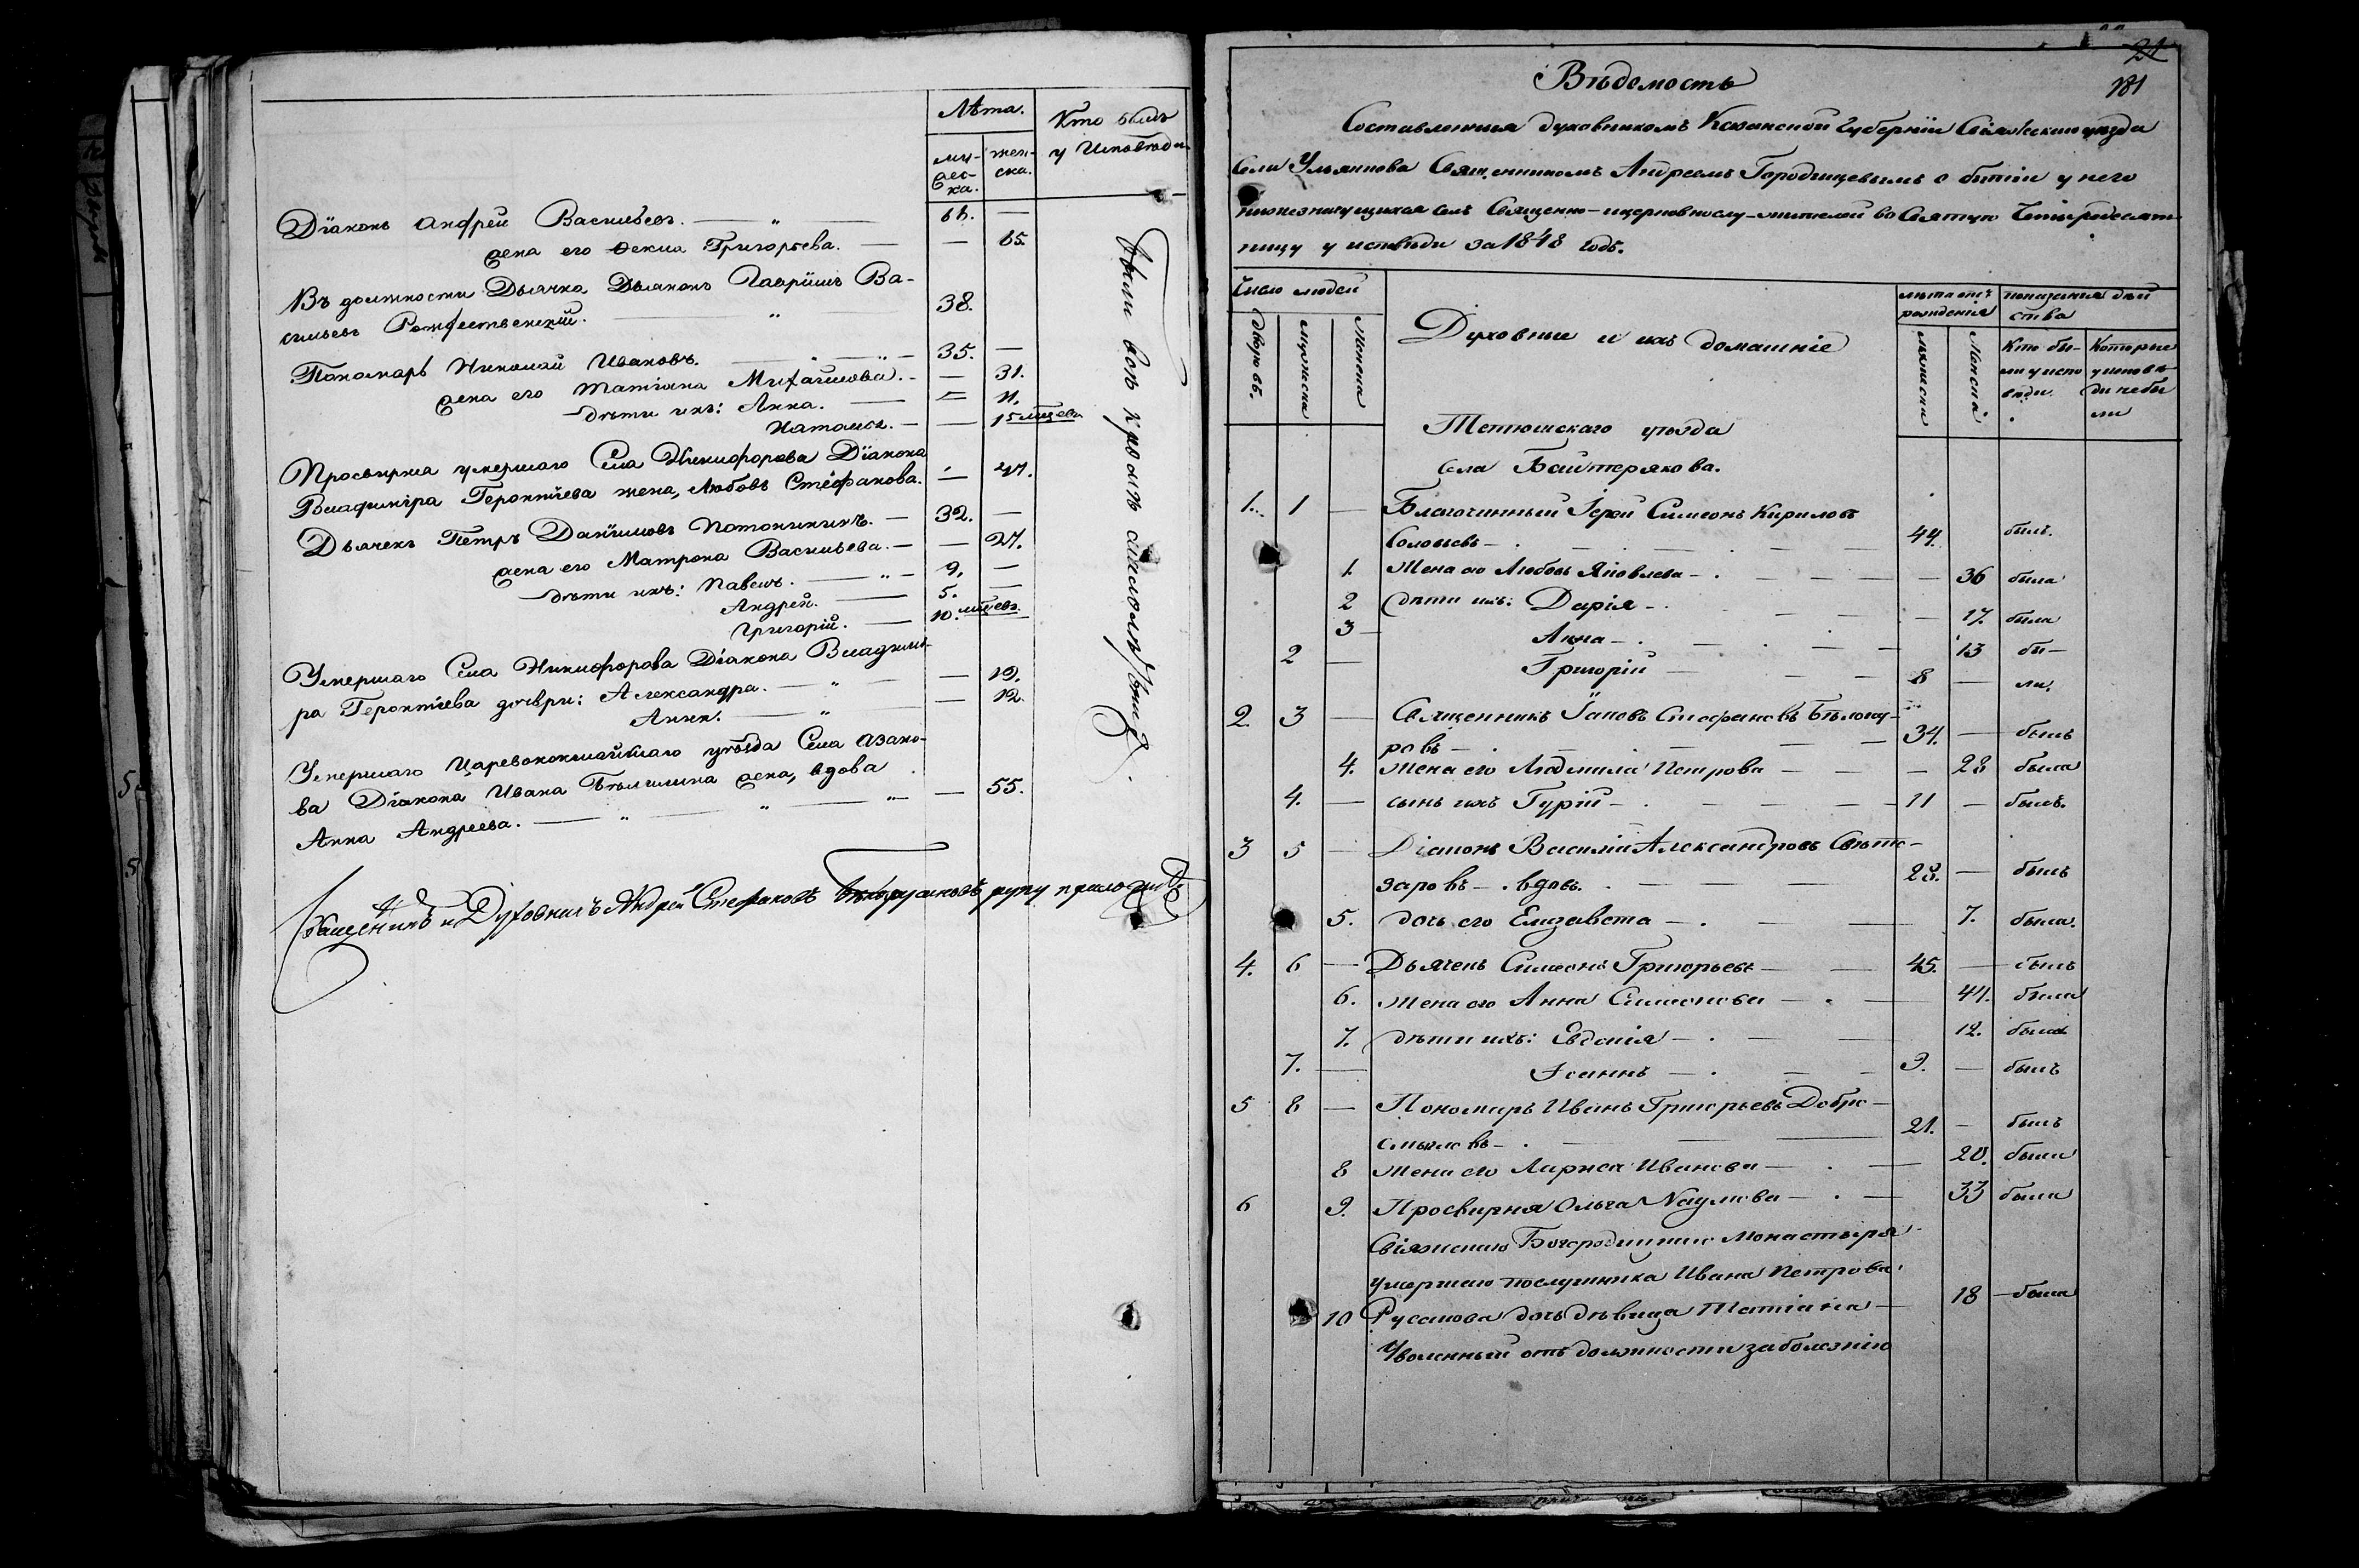 Лѣта.
Кто былъ
у Исповѣди
муж-
ска.
жен-
ска.
Дїаконъ Андрей Васильевъ. — „ — 61. —
жена его Ѳекла Григорьева. — — 65.
Въ должности Дьячка Дьяконъ Гаврїилъ Ва-
сильевъ Рождественскїй. — „ 38.
Пономарь Николай Ивановъ. — „ — 35. —
жена его Татїана Михайлова. — — 31.
дѣти ихъ: Анна. — — 11.
Наталья. — — 1 1/2 мѣсяц.
Просвирня умершаго Села Никифорова Дїакона
Владимїра Геронтїева жена, Любовь Стефанова. — 47.
Дьячекъ Петръ Данїиловъ Потоникинъ. — 32. —
жена его Матрона Васильева. — — 27.
дѣти ихъ: Павелъ. — „ — 9. —
Андрей. — 5. —
Григорїй. — 10. мѣсяц.
Умершаго Села Никифорова Дїакона Владимї-
ра Геронтїева дочери: Александра. — „ — — 19.
Анна. — „ — 12.
Умершаго Царевококшайскаго уѣзда Села Азано-
ва Дїакона Ивана Бѣлилина жена, вдова
Анна Андреева. — „ — „ — „ — 55.
Были всѣ кромѣ
Священникъ и Духовникъ Андрей Стефановъ руку приложилъ
21
181
Вѣдомость
Составленная духовникомъ Казанской Губернїи Свїяжскаго уѣзда
Села Ульянкова Священникомъ Андреемъ Городищевымъ о бытїи у него
нижезначущихся селъ Священно-и церковнослу-жителей во Святую Четыредесят-
ницу у исповѣди за 1848 годъ.
Число людей
Дворовъ.
Мужеска
Женска
Духовные и ихъ домашнїе
лѣта отъ
рожденія
Мужески
Женска
показанія дѣй
ства
Кто бы-
ли у испо
вѣди.
Которые
у исповѣ
ди не бы
ли
Тетюшскаго уѣзда
Села Байтерякова.
1. 1 — Благочинный Іерей Симеонъ Кириловъ
Соловьевъ — 44. былъ.
1. Жена его Любовь Яковлева — — 36 была
2 дѣти ихъ: Дарія — — 17. была
3 — Анна — — 13 бы-
2 — Григорій — 8 — ли.
2. 3 — Священникъ Іаковъ Стефановъ Бѣлоцу-
ровъ — 34. — былъ
4. Жена его Людмила Петрова — — 28 была
4. — сынъ ихъ Гурїй — 11 — былъ.
3 5 — Діаконъ Василій Александровъ Свѣто-
заровъ — вдовъ. 28. — былъ
5. дочь его Елизавета — 7. была.
4. 6 — Дьячекъ Симеонъ Григорьевъ — 45. — былъ
6. Жена его Анна Симеонова — 44. была
7. дѣти ихъ: Евдокія — 12. была.
7. — Іоаннъ — 9. — былъ
5 8 — Пономарь Иванъ Григорьевъ Добро-
смысловъ — 21. — былъ
8 Жена его Лариса Иванова — 20. была
6 9. Просвирня Ольга Наумова — 33 была
Свіяжскаго Богородицкаго Монастыря
умершаго послушника Ивана Петрова
10 Русанова дочь дѣвица Татіана — 18 — была
Уволенный отъ должности за болезнію